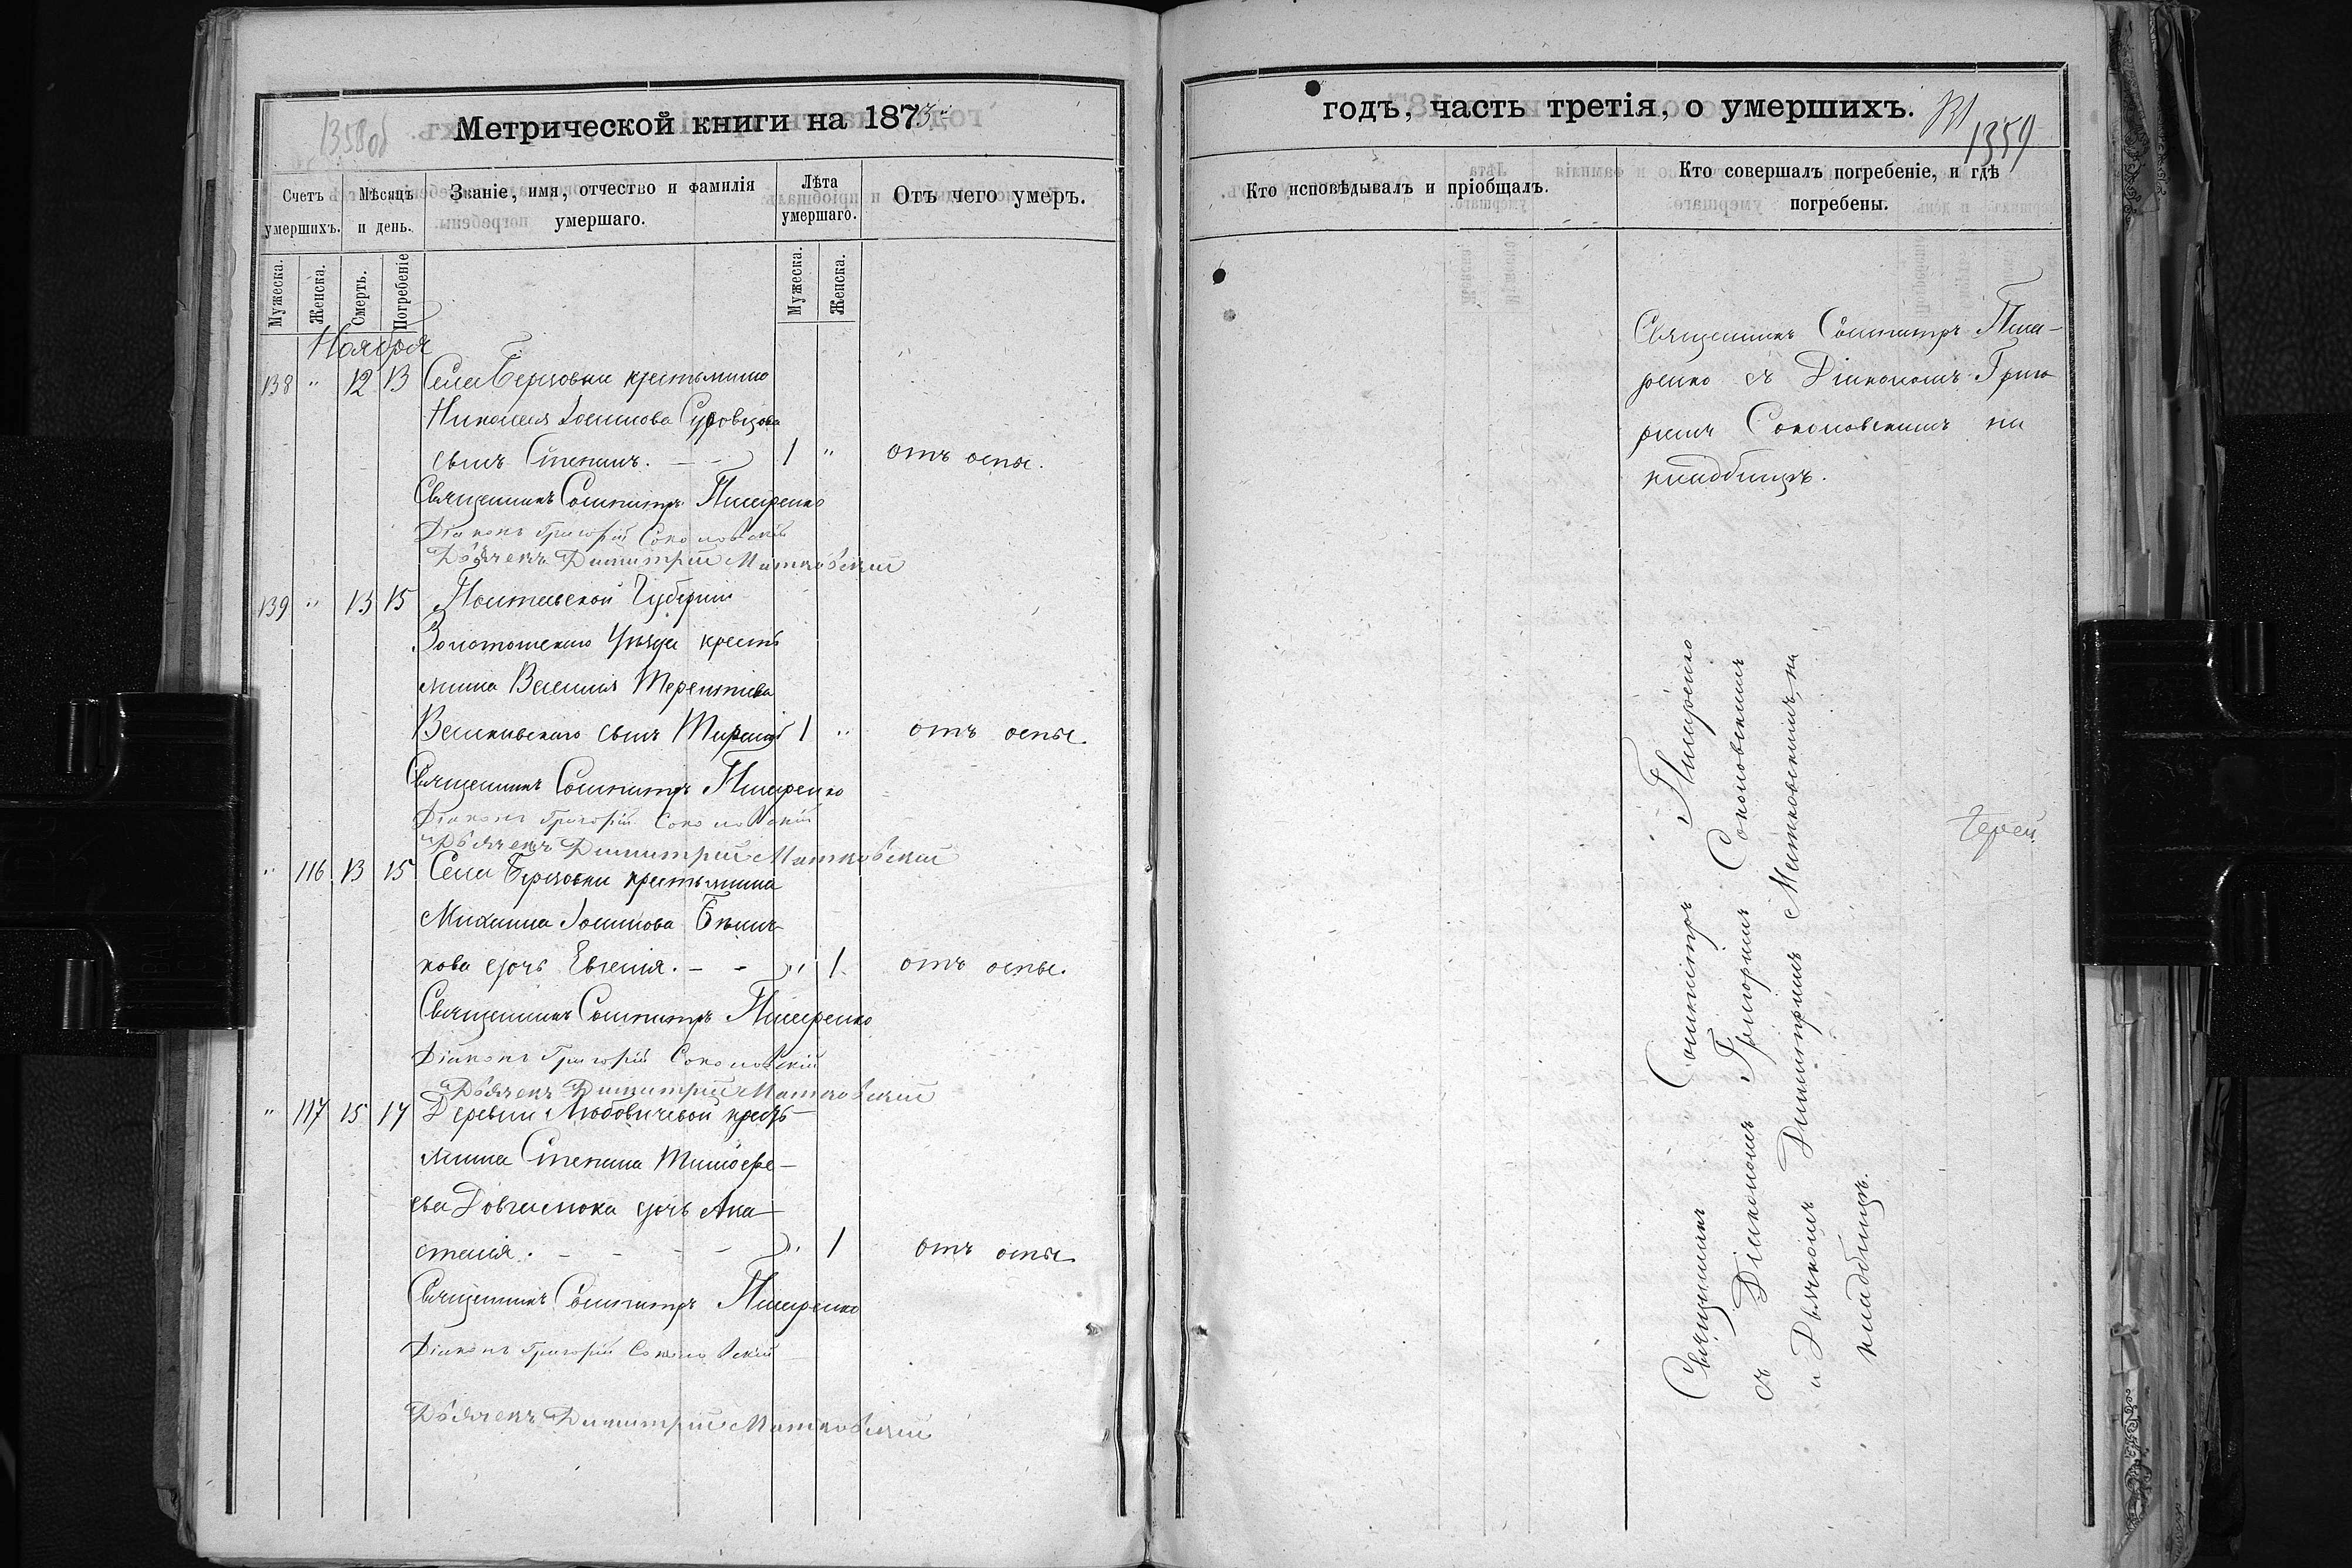 1358об
Метрической книги на 1873й
Счетъ умершихъ.
Мѣсяцъ и день.
Званіе, имя, отчество и фамилія умершаго.
Лѣта умершаго.
Отъ чего умеръ.
Мужеска.
Женска.
Смерть.
Погребеніе
Мужеска.
Женска.
Ноября
138 " 12 13 Села Березовки крестьянина
Николая Іоаннова
сынъ Степанъ. - - 1 " отъ оспы.
Священникъ Сосипатръ Писаренко
Діаконъ Григорій Соколовскій
Дьячекъ Димитрій Матковскій
139 " 13 15 Полтавской Губерніи
Золотоношскаго Уѣзда кресть
янина Василія Терентіева
Великивскаго сынъ 1 " отъ оспы.
Священникъ Сосипатръ Писаренко
Діаконъ Григорій Соколовскій
Дьячекъ Димитрій Матковскій
" 116 13 15 Села Березовки крестьянина
Михаила Іоаннова
кова дочь Евгенія. - - " 1 отъ оспы.
Священникъ Сосипатръ Писаренко
Діаконъ Григорій Соколовскій
Дьячекъ Димитрій Матковскій
" 117 15 17 Деревни Любовичевой кресть-
янина Степана Тимофе-
ева Довгалюка дочь Ана-
стасія. - - - - " 1 отъ оспы
Священникъ Сосипатръ Писаренко
Діаконъ Григорій Соколовскій
Дьячекъ Димитрій Матковскій
годъ, часть третія, о умершихъ.
1359
Кто исповѣдывалъ и пріобщалъ.
Кто совершалъ погребеніе, и гдѣ погребены.
Священникъ Сосипатръ Писа-
ренко съ Діакономъ Григо
ріемъ Соколовскимъ на
кладбищѣ.
Священникъ Сосипатръ Писаренко
съ Діакономъ Григоріемъ Соколовскимъ
и Дьячкомъ Димитріемъ Матковскимъ, на
кладбищѣ.